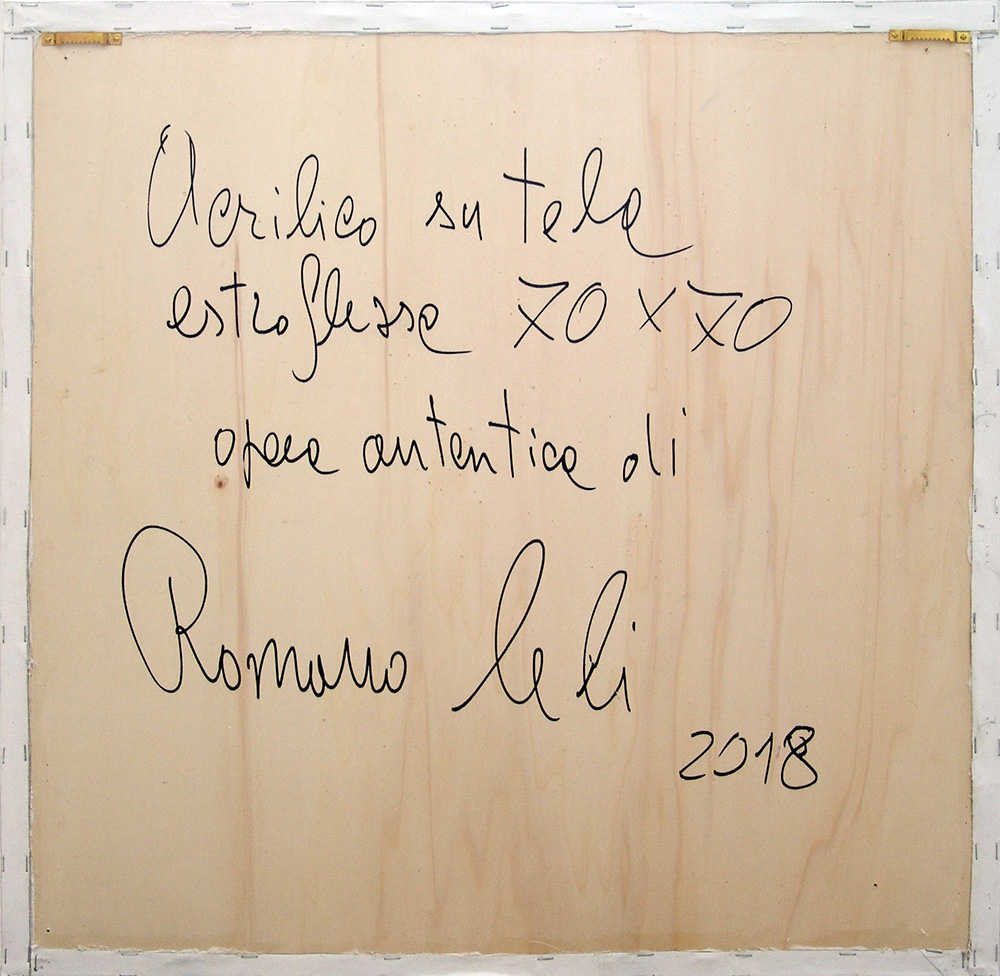 Acrilico su tela
estroflessa 70 x 70
opera autentica di
Romano Leli
2018